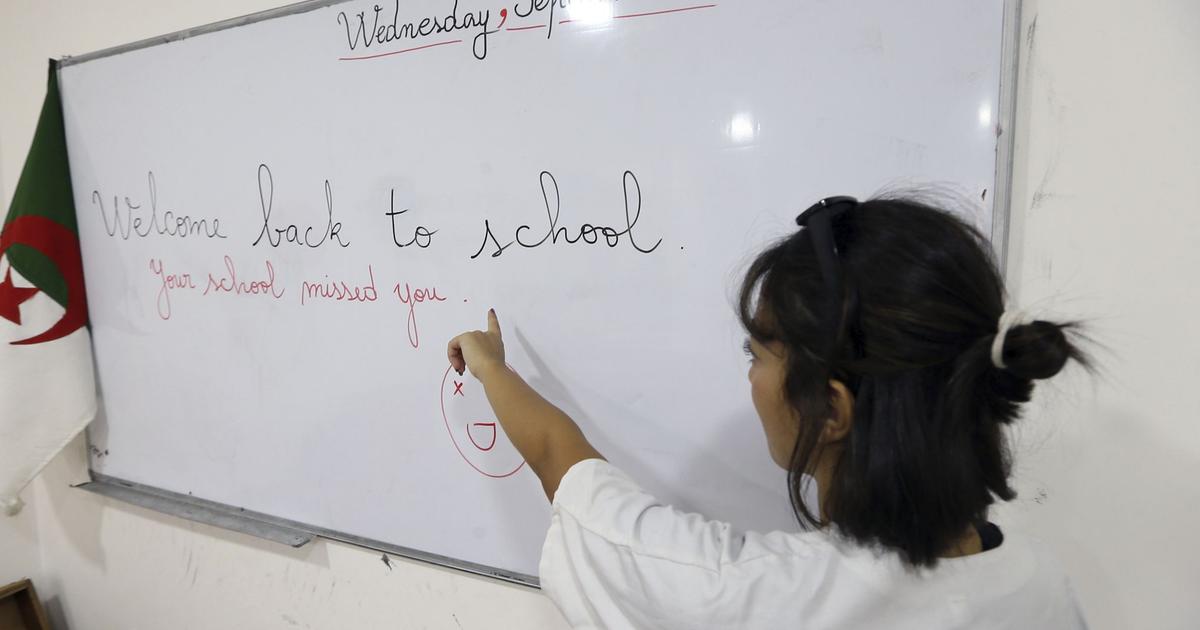 Wednesday,
Welcome back to school.
Your school missed you.